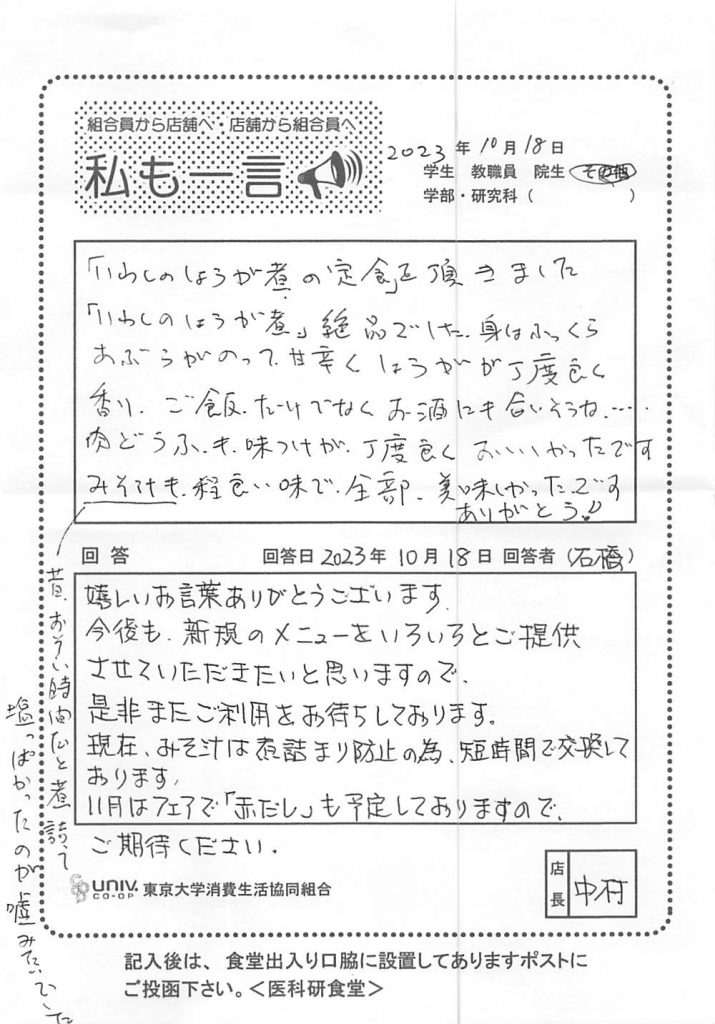 組合員から店舗へ・店舗から組合員へ
私も一言
2023年10月18日
学生 教職員 院生 その他
学部・研究科( )
「いわしのしょうが煮の定食」を頂きました
「いわしのしょうが煮」絶品でした.身はふっくら
あぶらがのって.甘辛く しょうがが丁度良く
香り.ご飯.だけでなく お酒にも合いそうね.……
肉どうふ.も.味つけが.丁度良く おいしかったです
みそ汁も.程良い味で.全部.美味しかった.です
ありがとう!!
昔.おそい時間だと煮詰って
塩っぱかったのが嘘みたいでした
回答 回答日 2023年10月18日 回答者(石橋)
嬉しいお言葉ありがとうございます.
今後も、新規のメニューをいろいろとご提供
させていただきたいと思いますので、
是非またご利用をお待ちしております。
現在、みそ汁は煮詰まり防止の為、短時間で交換して
おります.
11月はフェアで「赤だし」も予定しておりますので、
ご期待ください.
UNIV. CO-OP 東京大学消費生活協同組合
店長 中村
記入後は、食堂出入り口脇に設置してありますポストに
ご投函下さい。<医科研食堂>